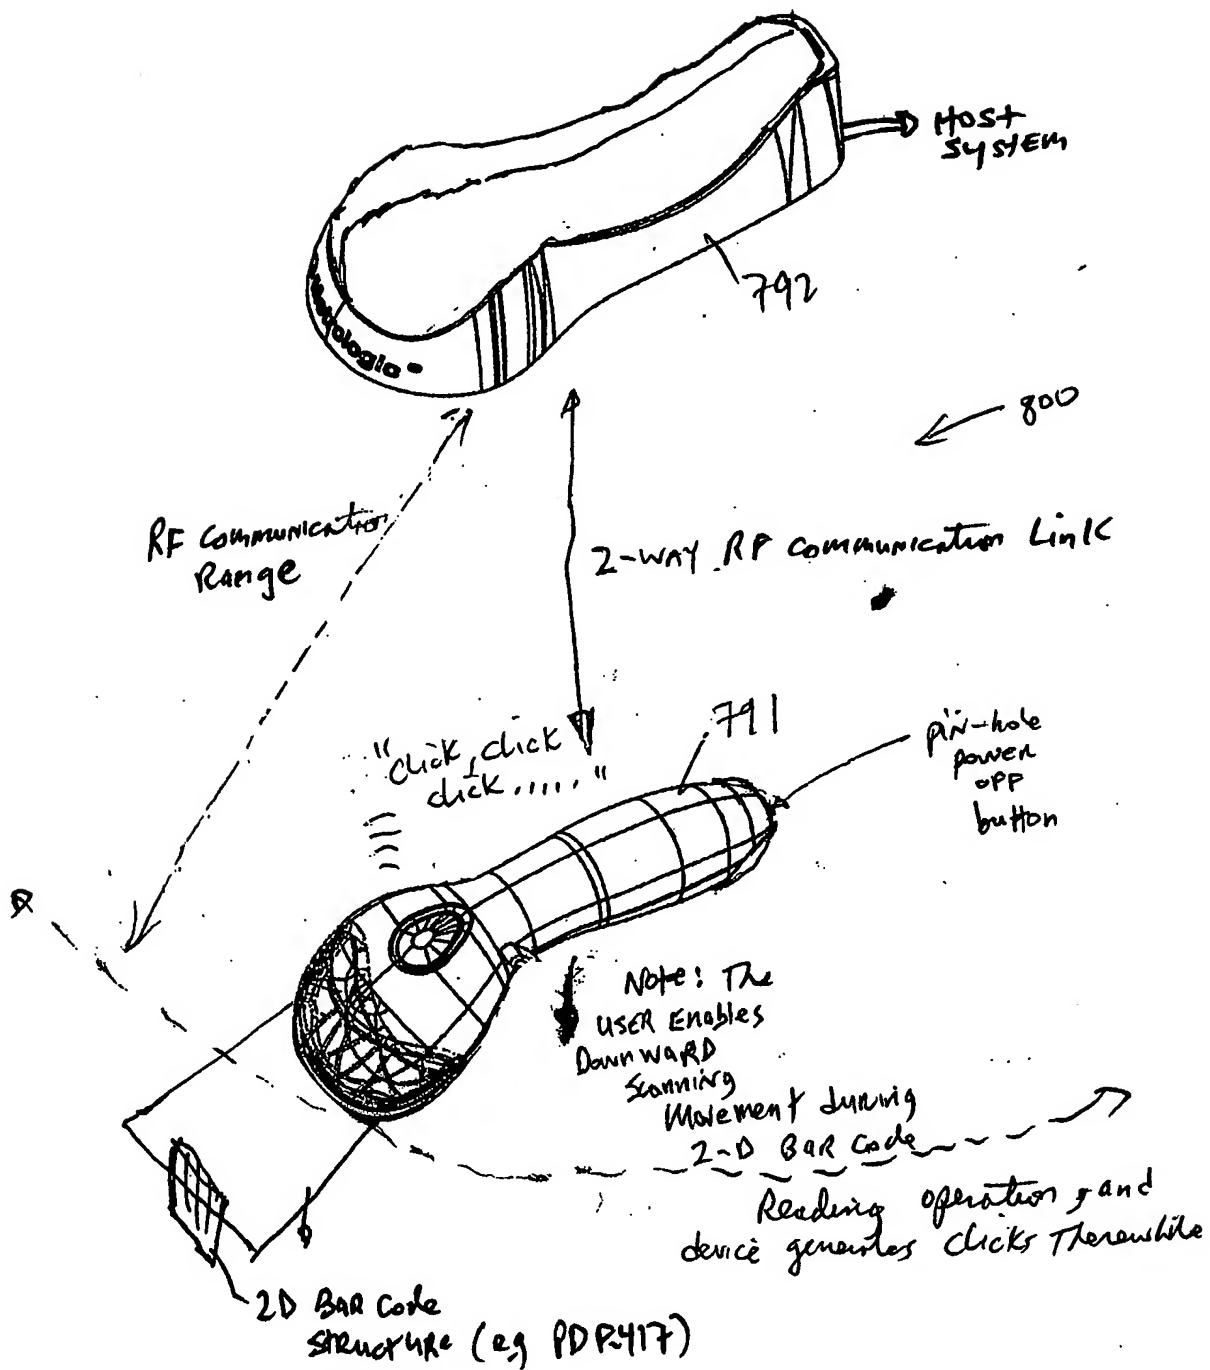 HOST
SYSTEM
metrologic
792
800
RF Communication
Range
2-WAY RF Communication Link
791
"click, click
click....."
pin-hole
power
off
button
Note: The
USER Enables
DownWARD
Scanning
Movement during
2-D BAR Code
Reading operation, and
device generates clicks Therewhile
2D BAR Code
Structure (eg PDP-417)